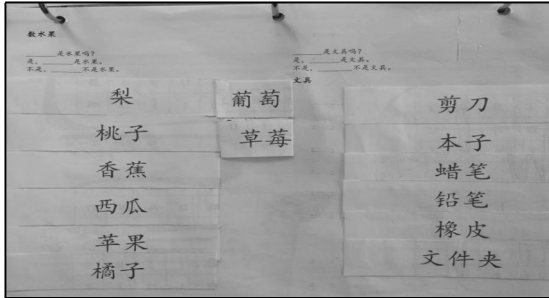 数水果
______是水果吗?
是,______是水果。
不是,______不是水果。
梨
桃子
香蕉
西瓜
苹果
橘子
葡萄
草莓
______是文具吗?
是,______是文具。
不是,______不是文具。
文具
剪刀
本子
蜡笔
铅笔
橡皮
文件夹